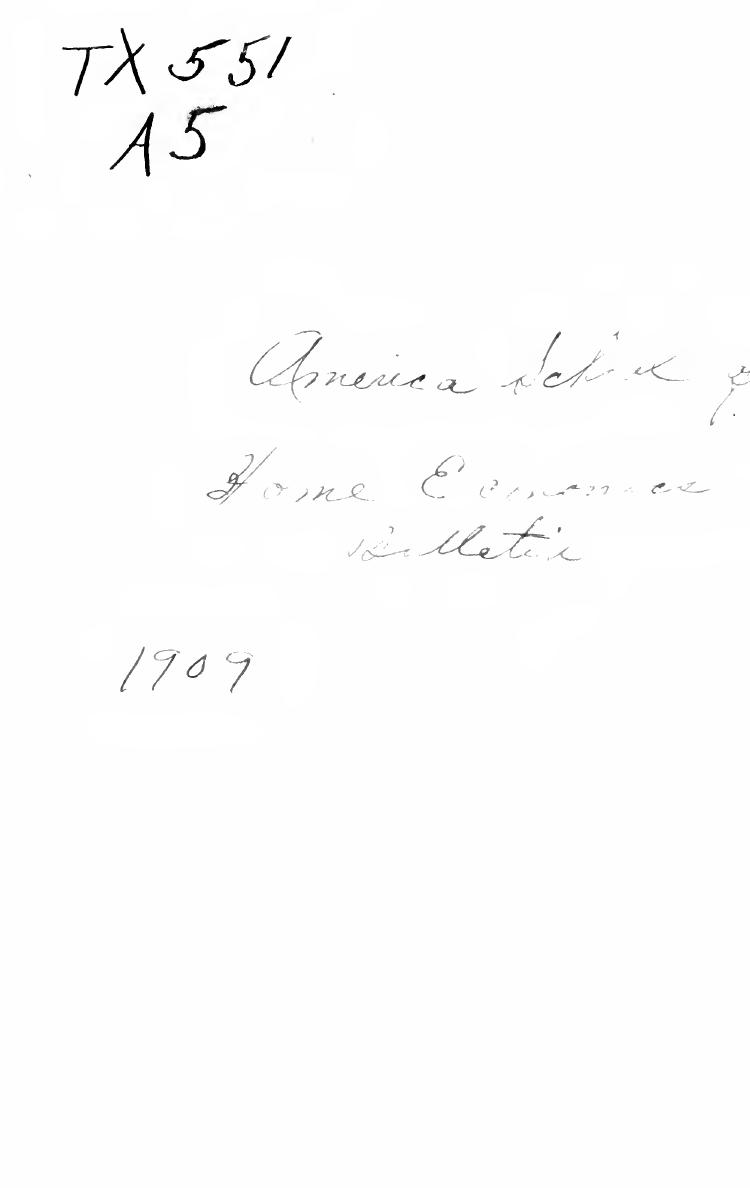 TX 551
A5
America School of
Home Economics
Bulletin
1909